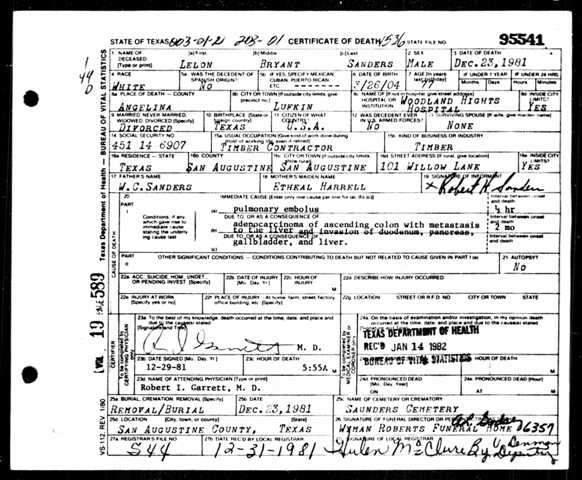 STATE OF TEXAS 203-01-21 203-01 CERTIFICATE OF DEATH 4536 STATE FILE NO. 95541
1 NAME OF DECEASED (Type or print) (a) First (b) Middle (c) Last 2 SEX 3 DATE OF DEATH
LELON BRYANT SANDERS MALE DEC. 23, 1981
4 RACE 5a WAS THE DECEDENT OF SPANISH ORIGIN? 5b IF YES, SPECIFY MEXICAN, CUBAN, PUERTO RICAN, ETC. 6 DATE OF BIRTH 7 AGE (In years last birthday) IF UNDER 1 YEAR IF UNDER 24 HRS
Months Days Hours Minutes
WHITE NO 3/26/04 77
8a PLACE OF DEATH — COUNTY 8b CITY OR TOWN (If outside city limits, give precinct no.) 8c NAME OF (If not in hospital, give street address) HOSPITAL OR INSTITUTION 8d INSIDE CITY LIMITS?
ANGELINA LUFKIN WOODLAND HIGHTS HOSPITAL YES
9 MARRIED, NEVER MARRIED, WIDOWED, DIVORCED (Specify) 10 BIRTHPLACE (State or foreign country) 11 CITIZEN OF WHAT COUNTRY? 12 WAS DECEDENT EVER IN U.S. ARMED FORCES? 13 SURVIVING SPOUSE (If wife, give maiden name)
DIVORCED TEXAS U.S.A. NO NONE
14 SOCIAL SECURITY NO. 15a USUAL OCCUPATION (Give kind of work done during most of working life, even if retired) 15b KIND OF BUSINESS OR INDUSTRY
451 14 6907 TIMBER CONTRACTOR TIMBER
16a RESIDENCE — STATE 16b COUNTY 16c CITY OR TOWN (If outside city limits, 16d STREET ADDRESS (If rural, give location) 16e INSIDE CITY LIMITS?
TEXAS SAN AUGUSTINE SAN AUGUSTINE 101 WILLOW LANE YES
17 FATHER'S NAME 18 MOTHER'S MAIDEN NAME 19 SIGNATURE OF INFORMANT
W.C. SANDERS ETHEAL HARRELL x Robert H. Sanders
20 PART I IMMEDIATE CAUSE (Enter only one cause per line for (a), (b) and (c)) Interval between onset and death
(a) pulmonary embolus ¼ hr
Conditions, if any, which gave rise to immediate cause stating the underlying cause last
DUE TO, OR AS A CONSEQUENCE OF: Interval between onset and death
(b) adenocarcinoma of ascending colon with metastasis to the liver and invasion of duodenum, pancreas, 2 mo
DUE TO, OR AS A CONSEQUENCE OF: Interval between onset and death
(c) gallbladder, and liver.
PART II OTHER SIGNIFICANT CONDITIONS — CONDITIONS CONTRIBUTING TO DEATH BUT NOT RELATED TO CAUSE GIVEN IN PART I (a) 21 AUTOPSY?
NO
22a ACC, SUICIDE, HOM, UNDET., OR PENDING INVEST (Specify) 22b DATE OF INJURY (Mo., Day, Yr.) 22c HOUR OF INJURY 22d DESCRIBE HOW INJURY OCCURRED
22e INJURY AT WORK (Specify yes or no) 22f PLACE OF INJURY - At home, farm, street, factory, office building, etc. (Specify) 22g LOCATION STREET OR R.F.D. NO CITY OR TOWN STATE
23a To the best of my knowledge, death occurred at the time, date, and place and due to the cause(s) stated 24a On the basis of examination and/or investigation, in my opinion death occurred at the time, date and place and due to the cause(s) stated
(Signature) M. D.
TEXAS DEPARTMENT OF HEALTH
REC'D JAN 14 1982
BUREAU OF VITAL STATISTICS
23b DATE SIGNED (Mo., Day, Yr.) 23c HOUR OF DEATH HOUR OF DEATH
12-29-81 5:55A M
23d NAME OF ATTENDING PHYSICIAN (Type or print) 24d PRONOUNCED DEAD (Mo., Day, Year) 24e PRONOUNCED DEAD (Hour)
Robert I. Garrett, M. D. ON AT M
25a BURIAL, CREMATION, REMOVAL (Specify) 25b DATE 25c NAME OF CEMETERY OR CREMATORY
REMOVAL/BURIAL DEC. 23, 1981 SAUNDERS CEMETERY
25d LOCATION (City, town, or county) (State) 26 SIGNATURE OF FUNERAL DIRECTOR OR PERSON
SAN AUGUSTINE COUNTY, TEXAS WYMAN ROBERTS FUNERAL HOME 06357
27a REGISTRAR'S FILE NO. 27b DATE REC'D BY LOCAL REGISTRAR 27c SIGNATURE OF LOCAL REGISTRAR
544 12-31-1981 Helen McClure By V. Denman Deputy
Texas Department of Health — BUREAU OF VITAL STATISTICS
CAUSE OF DEATH
CERTIFIER
To be completed by CERTIFYING PHYSICIAN
VOL 19 PAGE 589
VS-112 REV 1/80